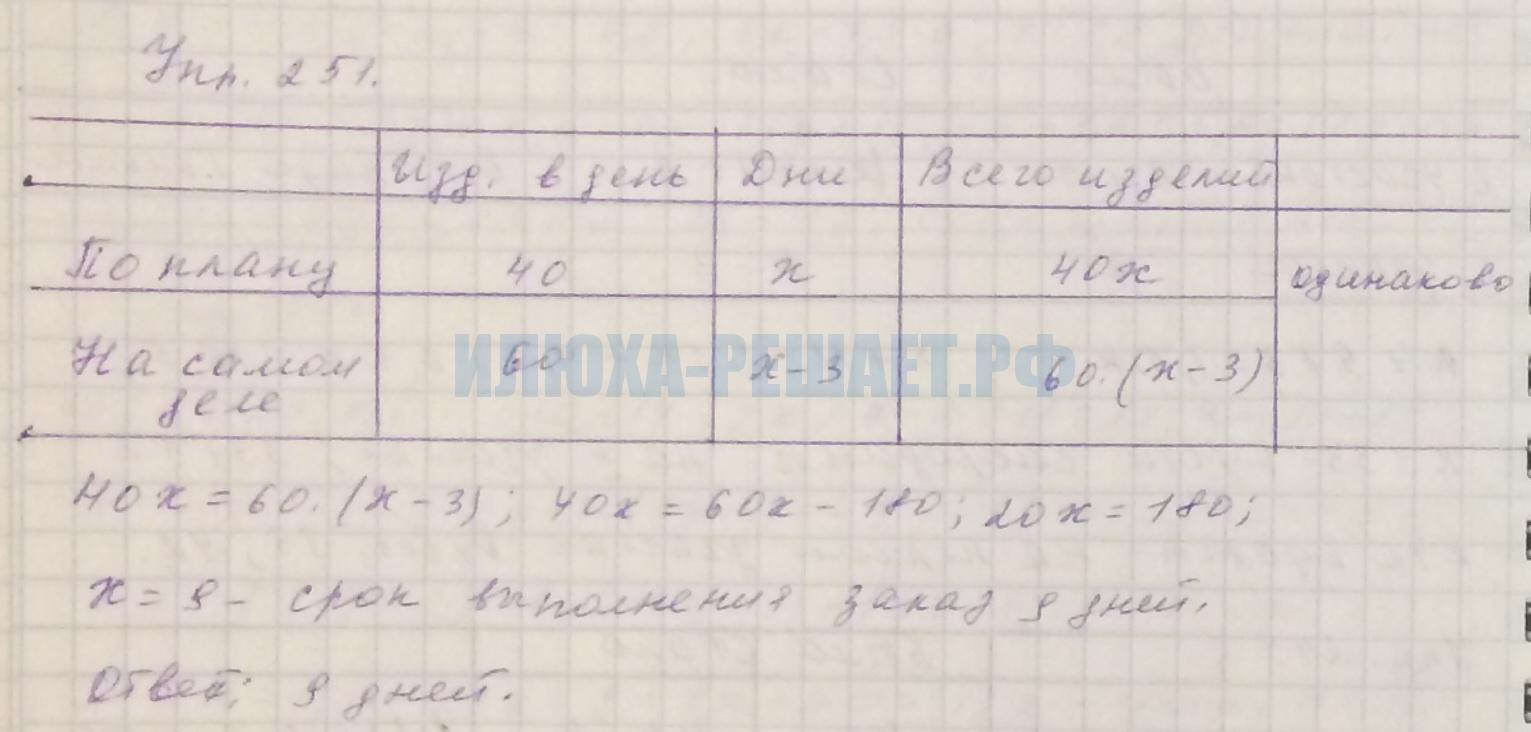 Упр. 251.
Изд. в день Дни Всего изделий
По плану 40 х 40х одинаково
На самом деле 60 х-3 60·(х-3)
ИЛЮХА-РЕШАЕТ.РФ
40х = 60·(х-3); 40х = 60х - 180; 20х = 180;
х = 9 - срок выполнения заказ 9 дней.
Ответ: 9 дней.